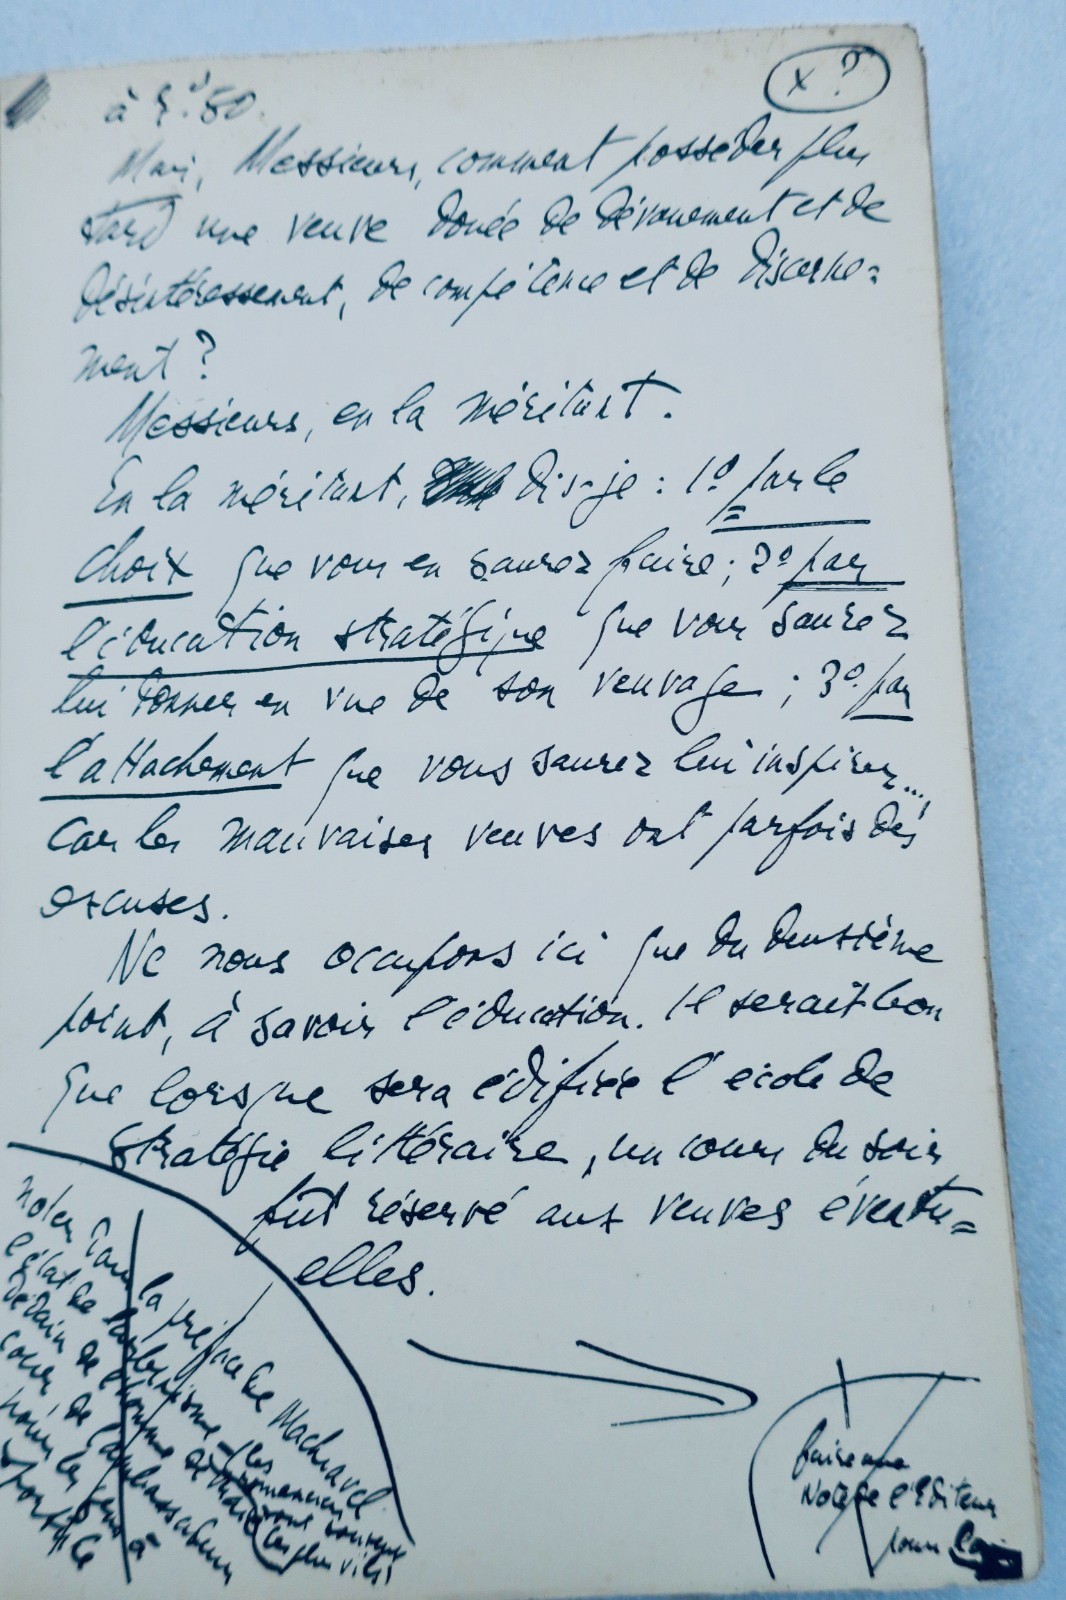 x ?
Mais, Messieurs, comment posseder plus
tard une veuve douée de dévouement et de
désintéressement, de compétence et de discerne=
ment ?
Messieurs, en la méritant.
En la méritant, dis-je : 1º par le
choix que vous en saurez faire ; 2º par
l'éducation stratégique que vous saurez
lui donner en vue de son veuvage ; 3º par
l'attachement que vous saurez lui inspirer...,
car les mauvaises veuves ont parfois des
excuses.
Ne nous occupons ici que du deuxième
point, à savoir l'éducation. Il serait bon
que lorsque sera édifiée l'école de
stratégie littéraire, un cours du soir
fût réservé aux veuves éventu=
elles.
noter dans la préface de Machiavel
l'état de
dédain de l'homme de
cour, de l'ambassadeur
pour les gens à
les romanciers sont souvent
les plus vils
faire une
Note de l'Editeur
pour